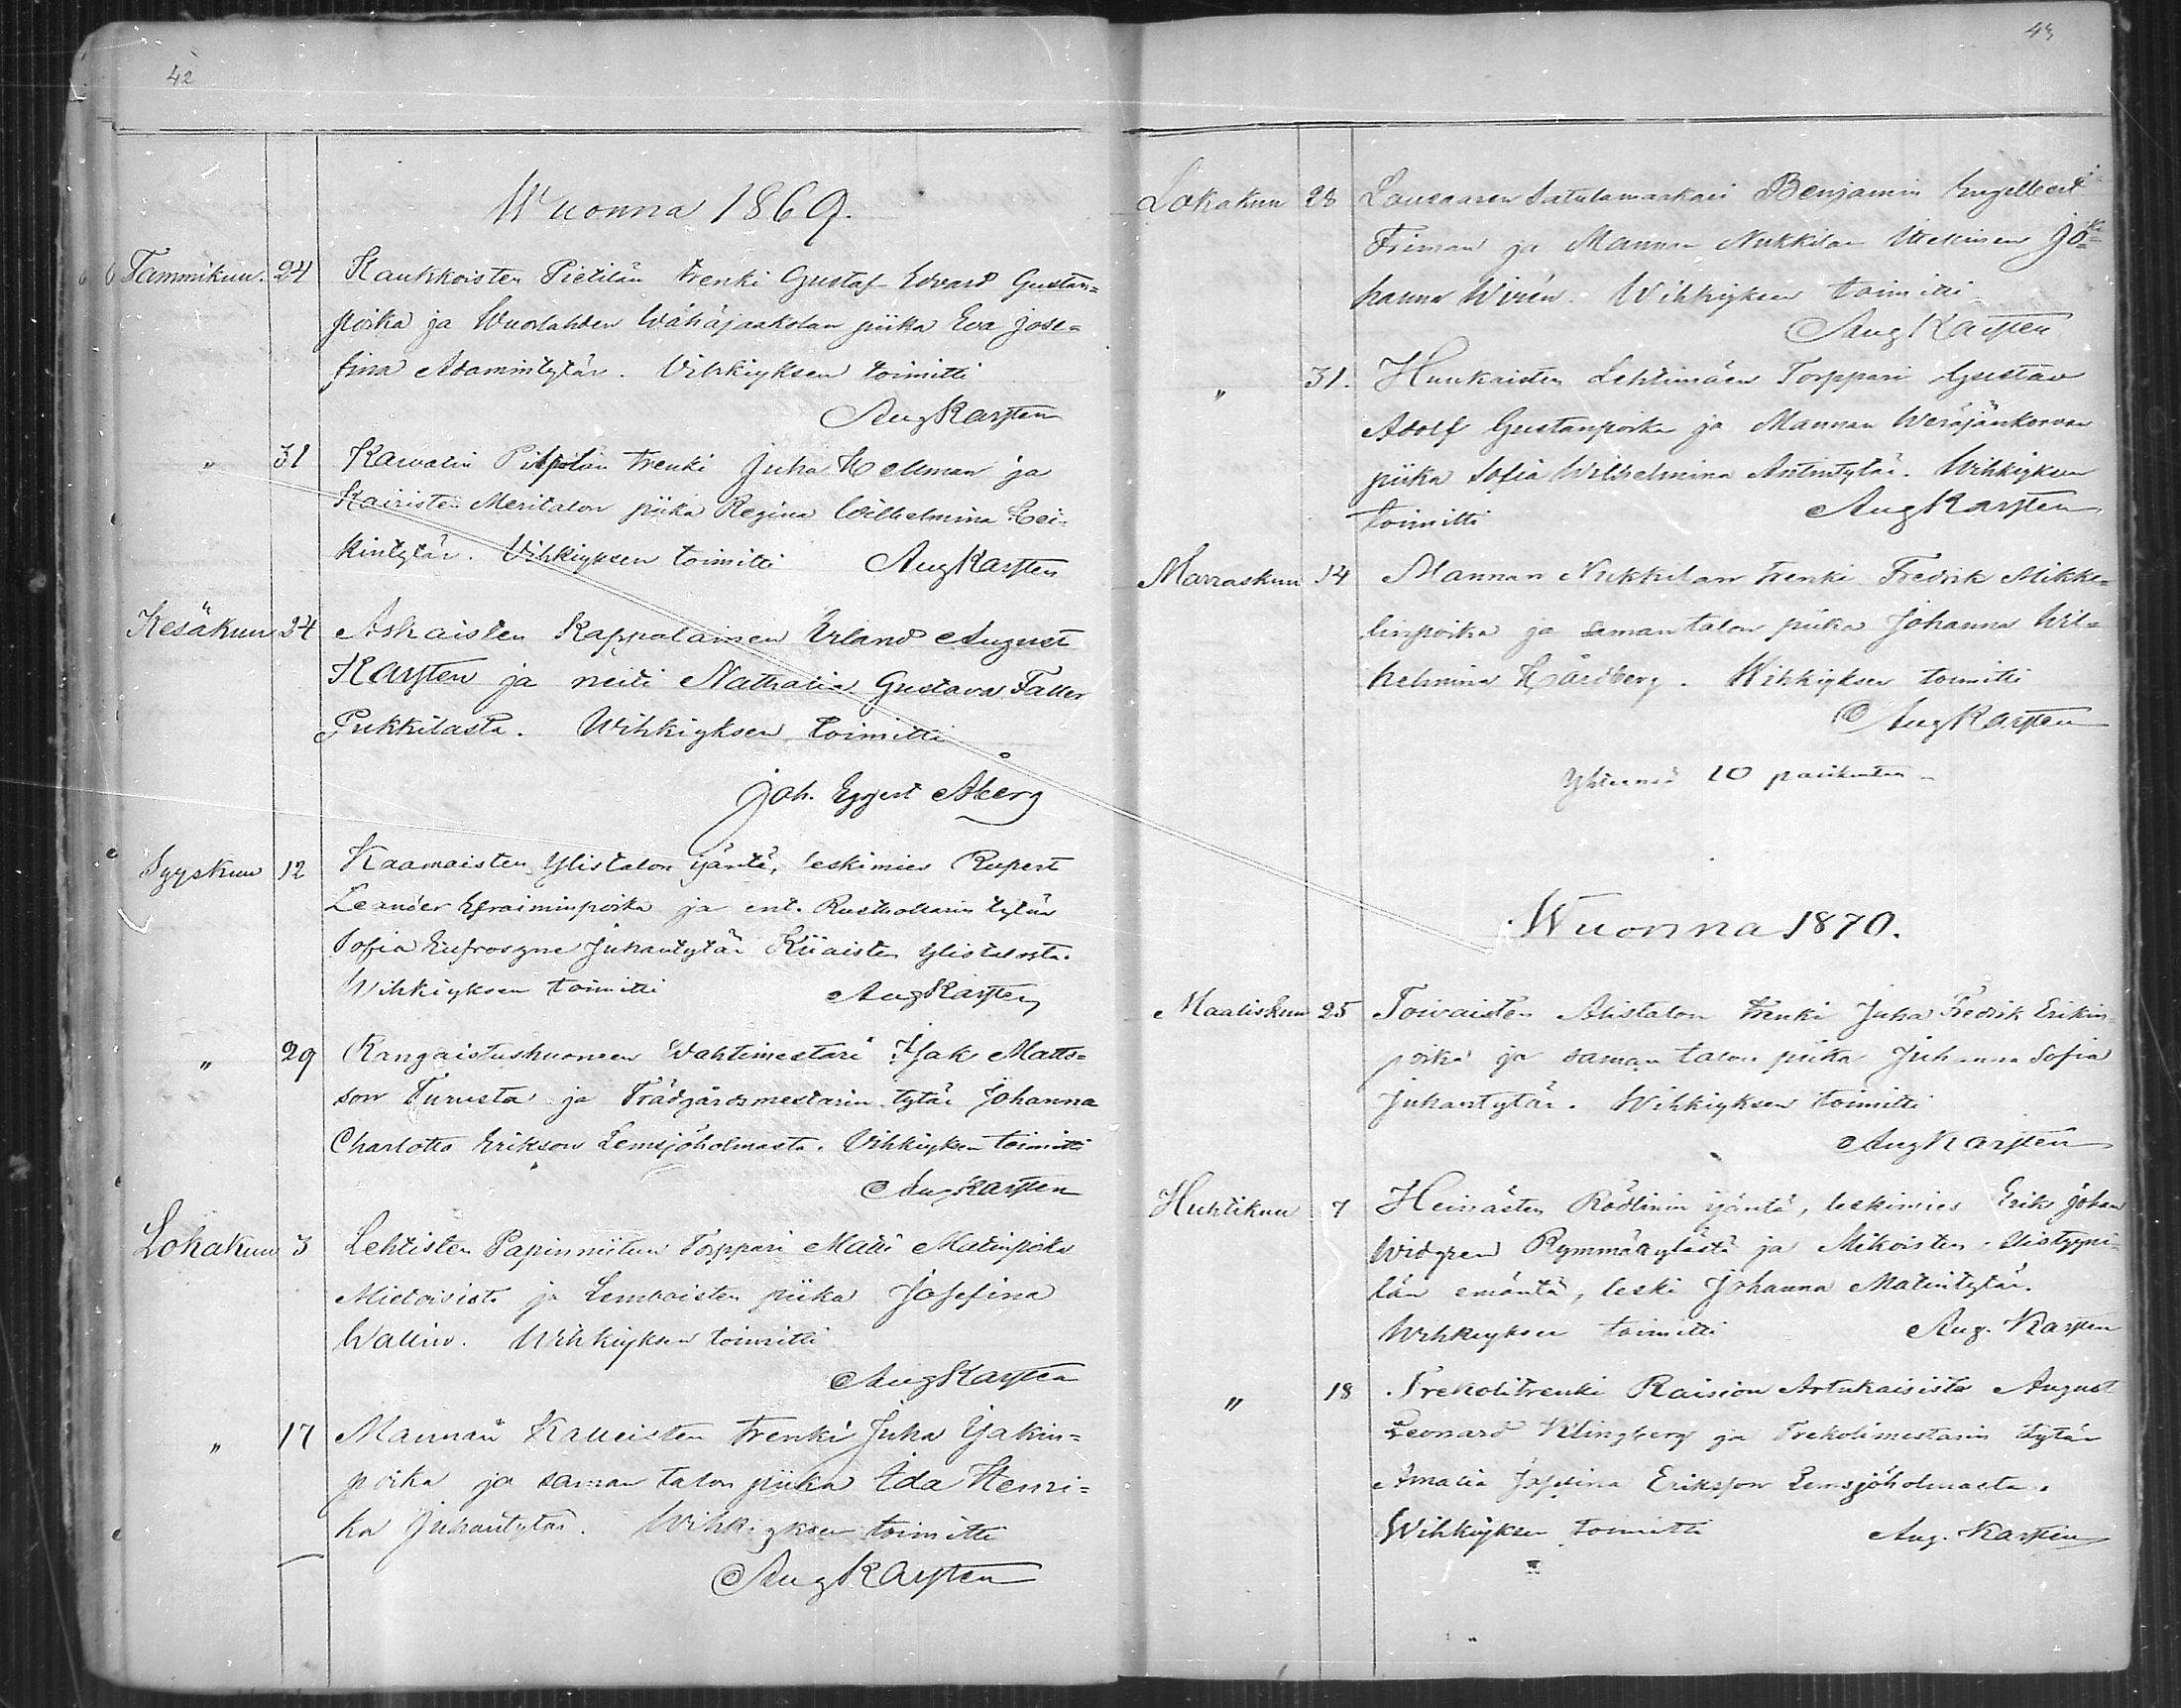 42
Wuonna 1869.
Tammikuu. 24 Kaukkoisten Pietilän trenki Gustaf Edvard Gustan=
poika ja Wuorlahden Wähäjaakolan piika Eva Jose=
fina Adamintytär. Vihkiyksen toimitti
Aug Karsten
" 31 Kawalin Pilpolan trenki Juha Hellman ja
Kairisten Meritalon piika Regina Wilhelmina Hei=
kintytär. Vihkiyksen toimitti Aug Karsten
Kesäkuu 24 Askaisten Kappalainen Erland August
Karsten ja neiti Nathalia Gustava Faller
Pukkilasta. Wihkiyksen toimitti
Joh. Eggert Åberg
Syyskuu 12 Kaamaisten Ylistalon isäntä, leskimies Rupert
Leander Efraiminpoika ja ent. Rusthollarin tytär
Sofia Eufrosyne Juhantytär Kiiaisten Ylistalosta.
Wihkiyksen toimitti Aug Karsten
" 29 Rangaistushuoneen Wahtimestari Isak Matts=
son Turusta ja Trädgårdsmestarin tytär Johanna
Charlotta Erikson Lemsjöholmasta. Vihkiyksen toimitti
Aug Karsten
Lokakuu 3 Lehtisten Papinniitun Torppari Matti Matinpoika
Mietoisista ja Lempoisten piika Josefina
Wallin. Wihkiyksen toimitti
Aug Karsten
" 17 Mannan Kalleisten trenki Juha Isakin=
poika ja saman talon piika Ida Henri=
ka Juhantytär. Wihkiyksen toimitti
Aug Karsten
43
Lokakuu 28 Lousaaren Satulamaakari Benjamin Engelbert
Friman ja Mannan Nukkilan Jo=
hanna Wirén. Wihkiyksen toimitti
Aug Karsten
" 31. Huukaisten Lehtimäen Torppari Gustav
Adolf Gustanpoika ja Mannan Weräjänkorvan
piika Sofia Wilhelmina Antintytär. Wihkiyksen
toimitti Aug Karsten
Marraskuu 14 Mannan Nukkilan trenki Fredrik Mikke=
linpoika ja saman talon piika Johanna Wil=
helmina Hårdberg. Wihkiyksen toimitti
Aug Karsten
Yhteensä 10 pariskuntaa
Wuonna 1870.
Maaliskuu 25 Toivaisten Alistalon trenki Juha Fredrik Erikin=
poika ja saman talon piika Juhanna Sofia
Juhantytär. Wihkiyksen toimitti
Aug Karsten
Huhtikuu 7 Heinästen Rödlinin isäntä, leskimies Erik Johan
Widgren Rymmätylästä ja Mikoisten
län emäntä, leski Johanna Matintytär.
Wihkiyksen toimitti Aug. Karsten
" 18 Trekolitrenki Raision Artukaisista August
Leonard Klingberg ja Trekolimestarin tytär
Amalia Josefina Eriksson Lemsjöholmasta.
Wihkiyksen toimitti Aug. Karsten